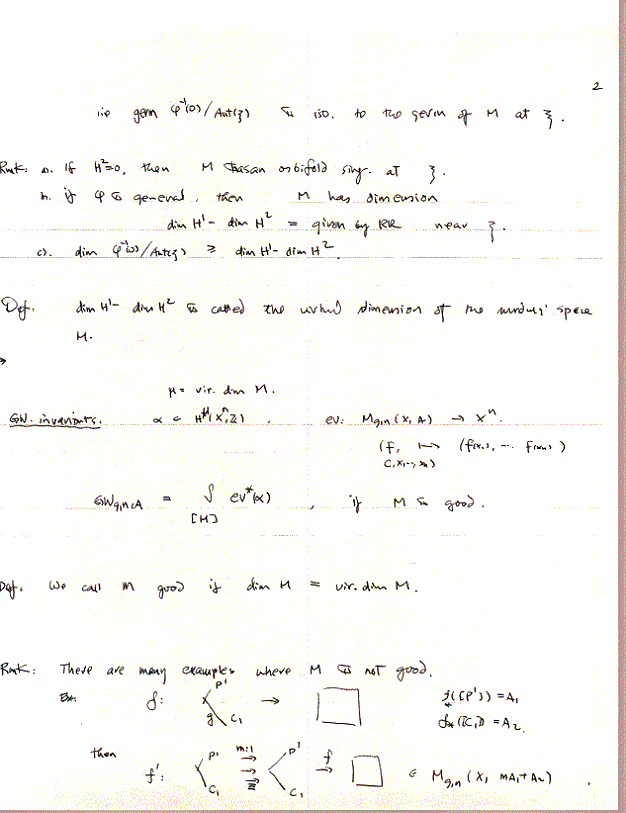 2
i.e germ φ⁻¹(0)/Aut(ξ) is iso. to the germ of M at ξ.
Rmk: a. If H²=0, then M has an orbifold sing. at ξ.
b. if φ is general, then M has dimension
dim H¹ - dim H² = given by RR near ξ.
c). dim φ⁻¹(0)/Aut(ξ) ≥ dim H¹ - dim H².
Def. dim H¹ - dim H² is called the virtual dimension of the moduli space
M.
μ = vir. dim M.
GW. invariants. α ∈ H^μ(Xⁿ, Z), ev: M_{g,n}(X, A) → Xⁿ.
(f, ↦ (f(x₁), ... f(xₙ))
C, x₁, .., xₙ)
GW_{g,n,A} = ∫ ev*(α), if M is good.
[M]
Def. We call M good if dim M = vir. dim M.
Rmk: There are many examples where M is not good.
Ex. f: P¹ → f_*([P¹]) = A₁
g C₁ f_*([C₁]) = A₂.
then P¹ m:1 P¹ f
f': C₁ C₁ → ∈ M_{g,n}(X, mA₁+A₂).